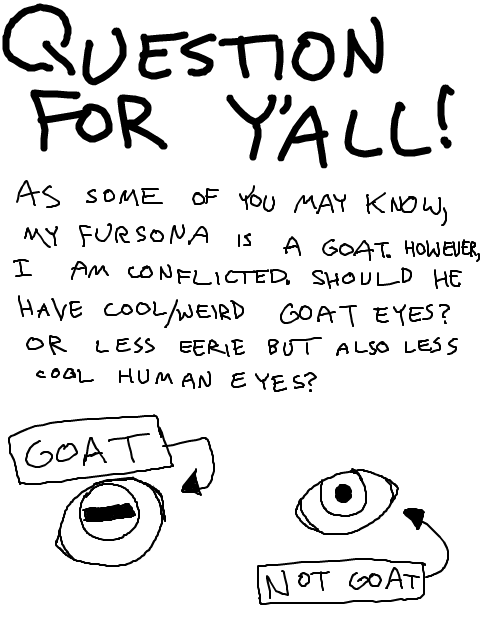 QUESTION
FOR Y'ALL!
AS SOME OF YOU MAY KNOW,
MY FURSONA IS A GOAT. HOWEVER,
I AM CONFLICTED. SHOULD HE
HAVE COOL/WEIRD GOAT EYES?
OR LESS EERIE BUT ALSO LESS
COOL HUMAN EYES?
GOAT
NOT GOAT